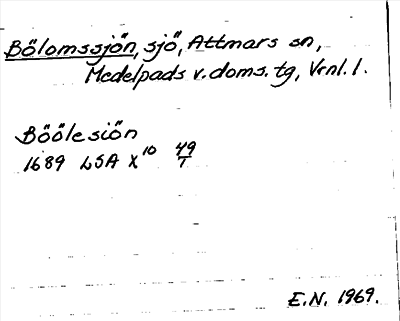 Bölomssjön, sjö, Attmars sn,
Medelpads v. doms. tg, Vrnl. l.
Böölesiön
1689 LSA X10 49/1
E.N. 1969.